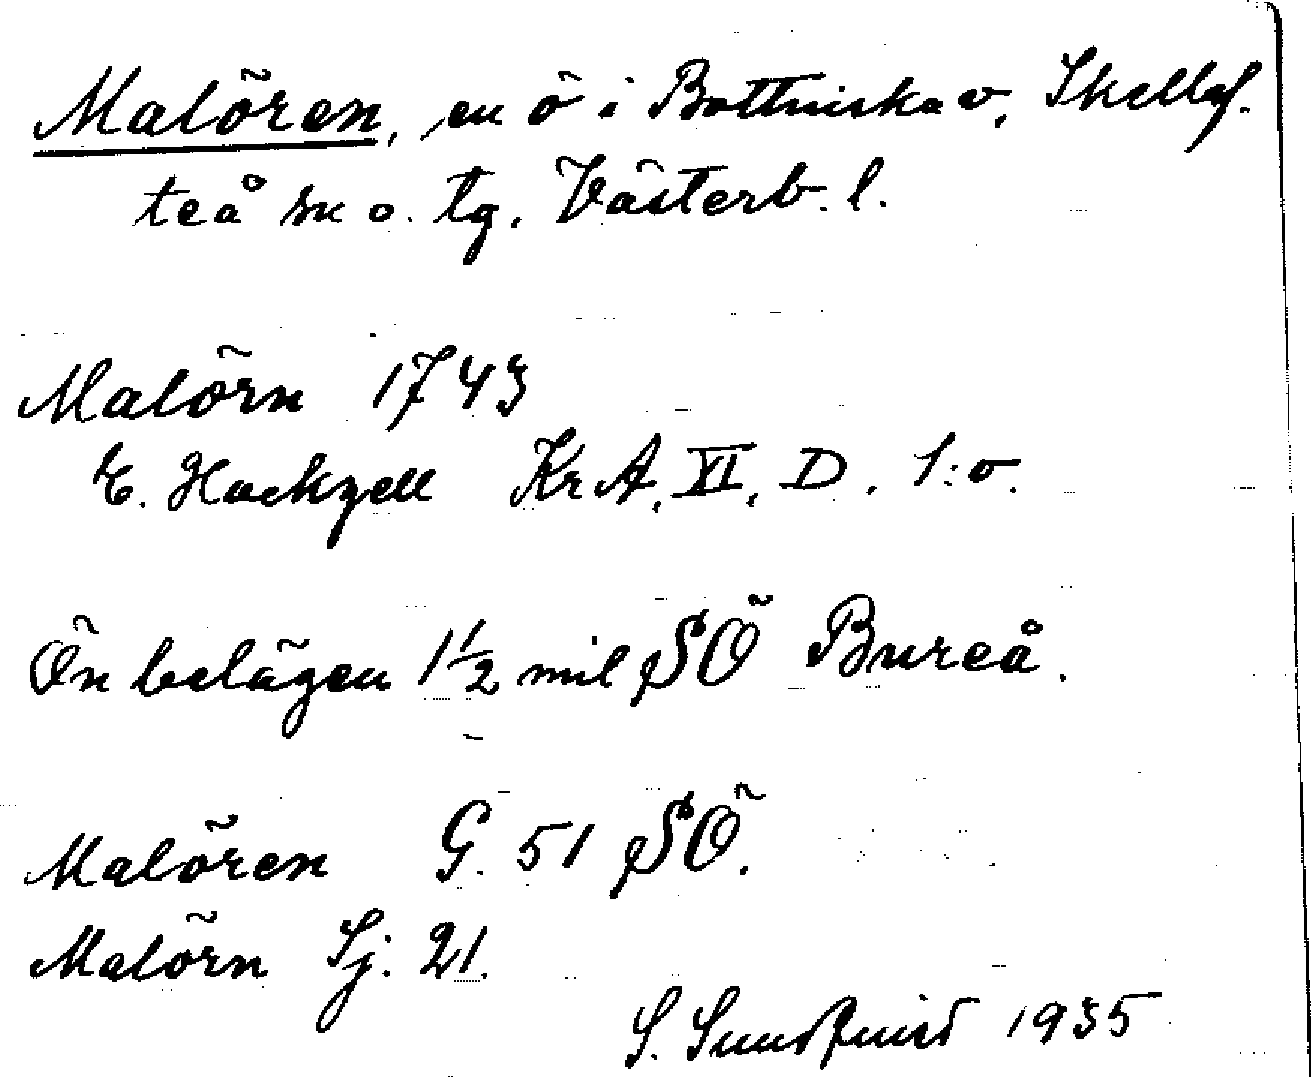 Malören, en ö i Bottniska v, Skellef-
teå sn o. tg. Västerb. l.
Malörn 1743
E. Hackzell KrA, XI, D. 1:o.
Ön belägen 1½ mil SÖ Bureå.
Malören G. 51 SÖ.
Malörn Sj. 21.
S. Sundqvist 1935